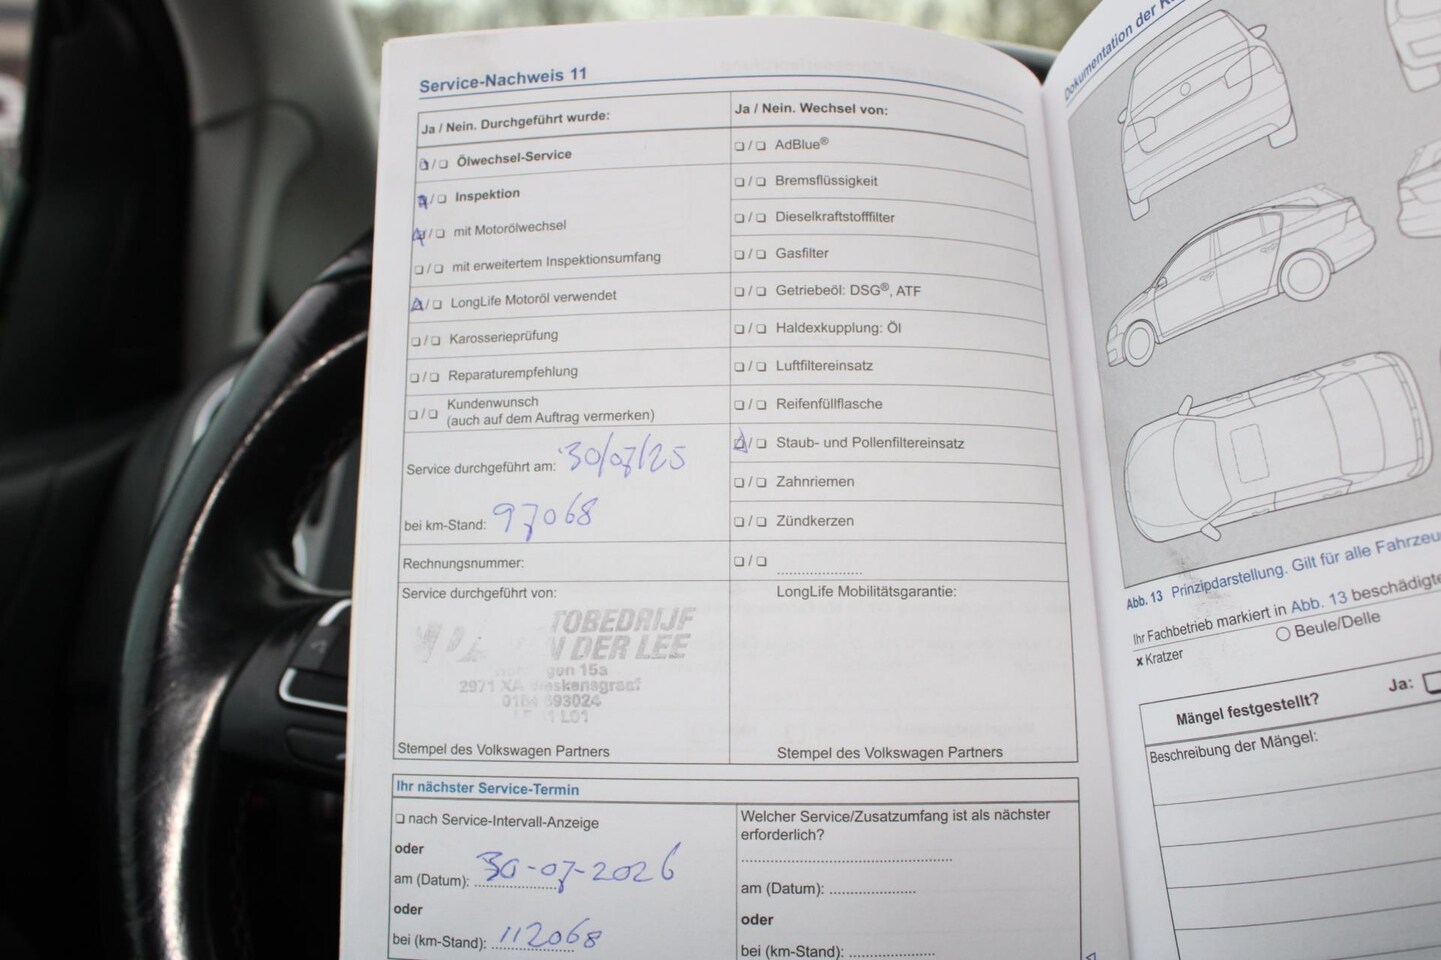 Service-Nachweis 11
Ja / Nein. Durchgeführt wurde:
❏/❏ Ölwechsel-Service
❏/❏ Inspektion
❏/❏ mit Motorölwechsel
❏/❏ mit erweitertem Inspektionsumfang
❏/❏ LongLife Motoröl verwendet
❏/❏ Karosserieprüfung
❏/❏ Reparaturempfehlung
❏/❏ Kundenwunsch
(auch auf dem Auftrag vermerken)
Service durchgeführt am: 30/07/25
bei km-Stand: 97068
Rechnungsnummer:
Service durchgeführt von:
TOBEDRIJF
N DER LEE
15a
2971 XA
Stempel des Volkswagen Partners
Ja / Nein. Wechsel von:
❏/❏ AdBlue®
❏/❏ Bremsflüssigkeit
❏/❏ Dieselkraftstofffilter
❏/❏ Gasfilter
❏/❏ Getriebeöl: DSG®, ATF
❏/❏ Haldexkupplung: Öl
❏/❏ Luftfiltereinsatz
❏/❏ Reifenfüllflasche
❏/❏ Staub- und Pollenfiltereinsatz
❏/❏ Zahnriemen
❏/❏ Zündkerzen
❏/❏ ....................
LongLife Mobilitätsgarantie:
Stempel des Volkswagen Partners
Ihr nächster Service-Termin
❏ nach Service-Intervall-Anzeige
oder
am (Datum): 30-07-2026
oder
bei (km-Stand): 112068
Welcher Service/Zusatzumfang ist als nächster
erforderlich?
am (Datum): ....................
oder
bei (km-Stand): ....................
Dokumentation der
Abb. 13 Prinzipdarstellung. Gilt für alle
Ihr Fachbetrieb markiert in Abb. 13
x Kratzer ○ Beule/Delle
Mängel festgestellt? Ja:
Beschreibung der Mängel: